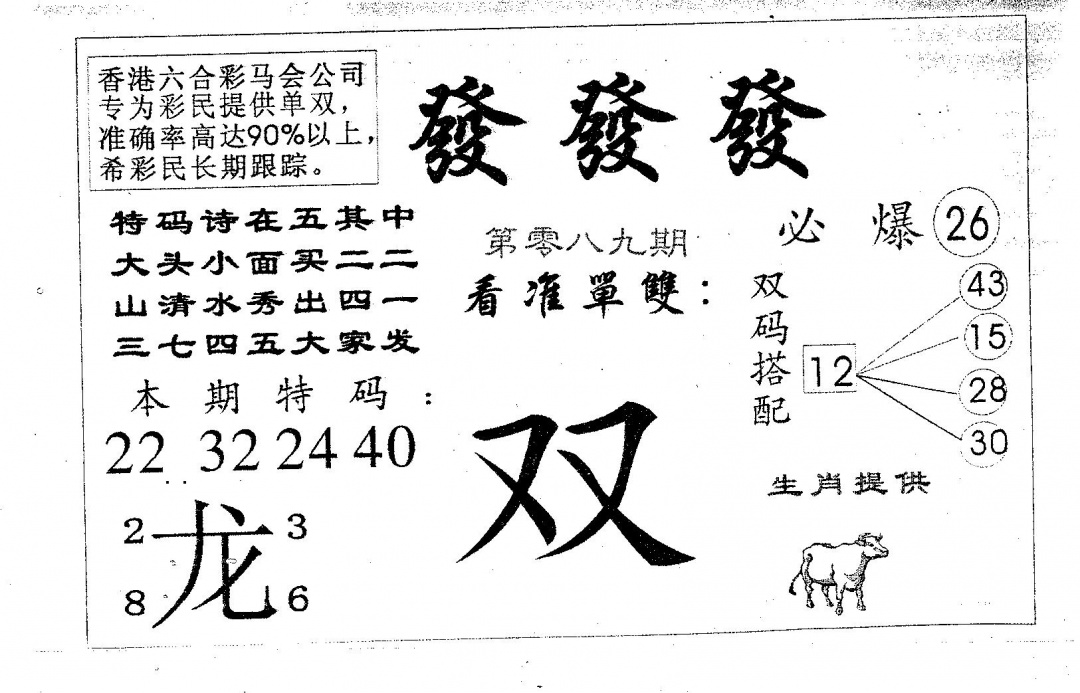 香港六合彩马会公司
专为彩民提供单双，
准确率高达90%以上，
希彩民长期跟踪。
發 發 發
特码诗在五其中
大头小面买二二
山清水秀出四一
三七四五大家发
本期特码：
22 32 24 40
2 3
龙
8 6
第零八九期
看准單雙：
双
必爆 26
双码搭配
12
43
15
28
30
生肖提供